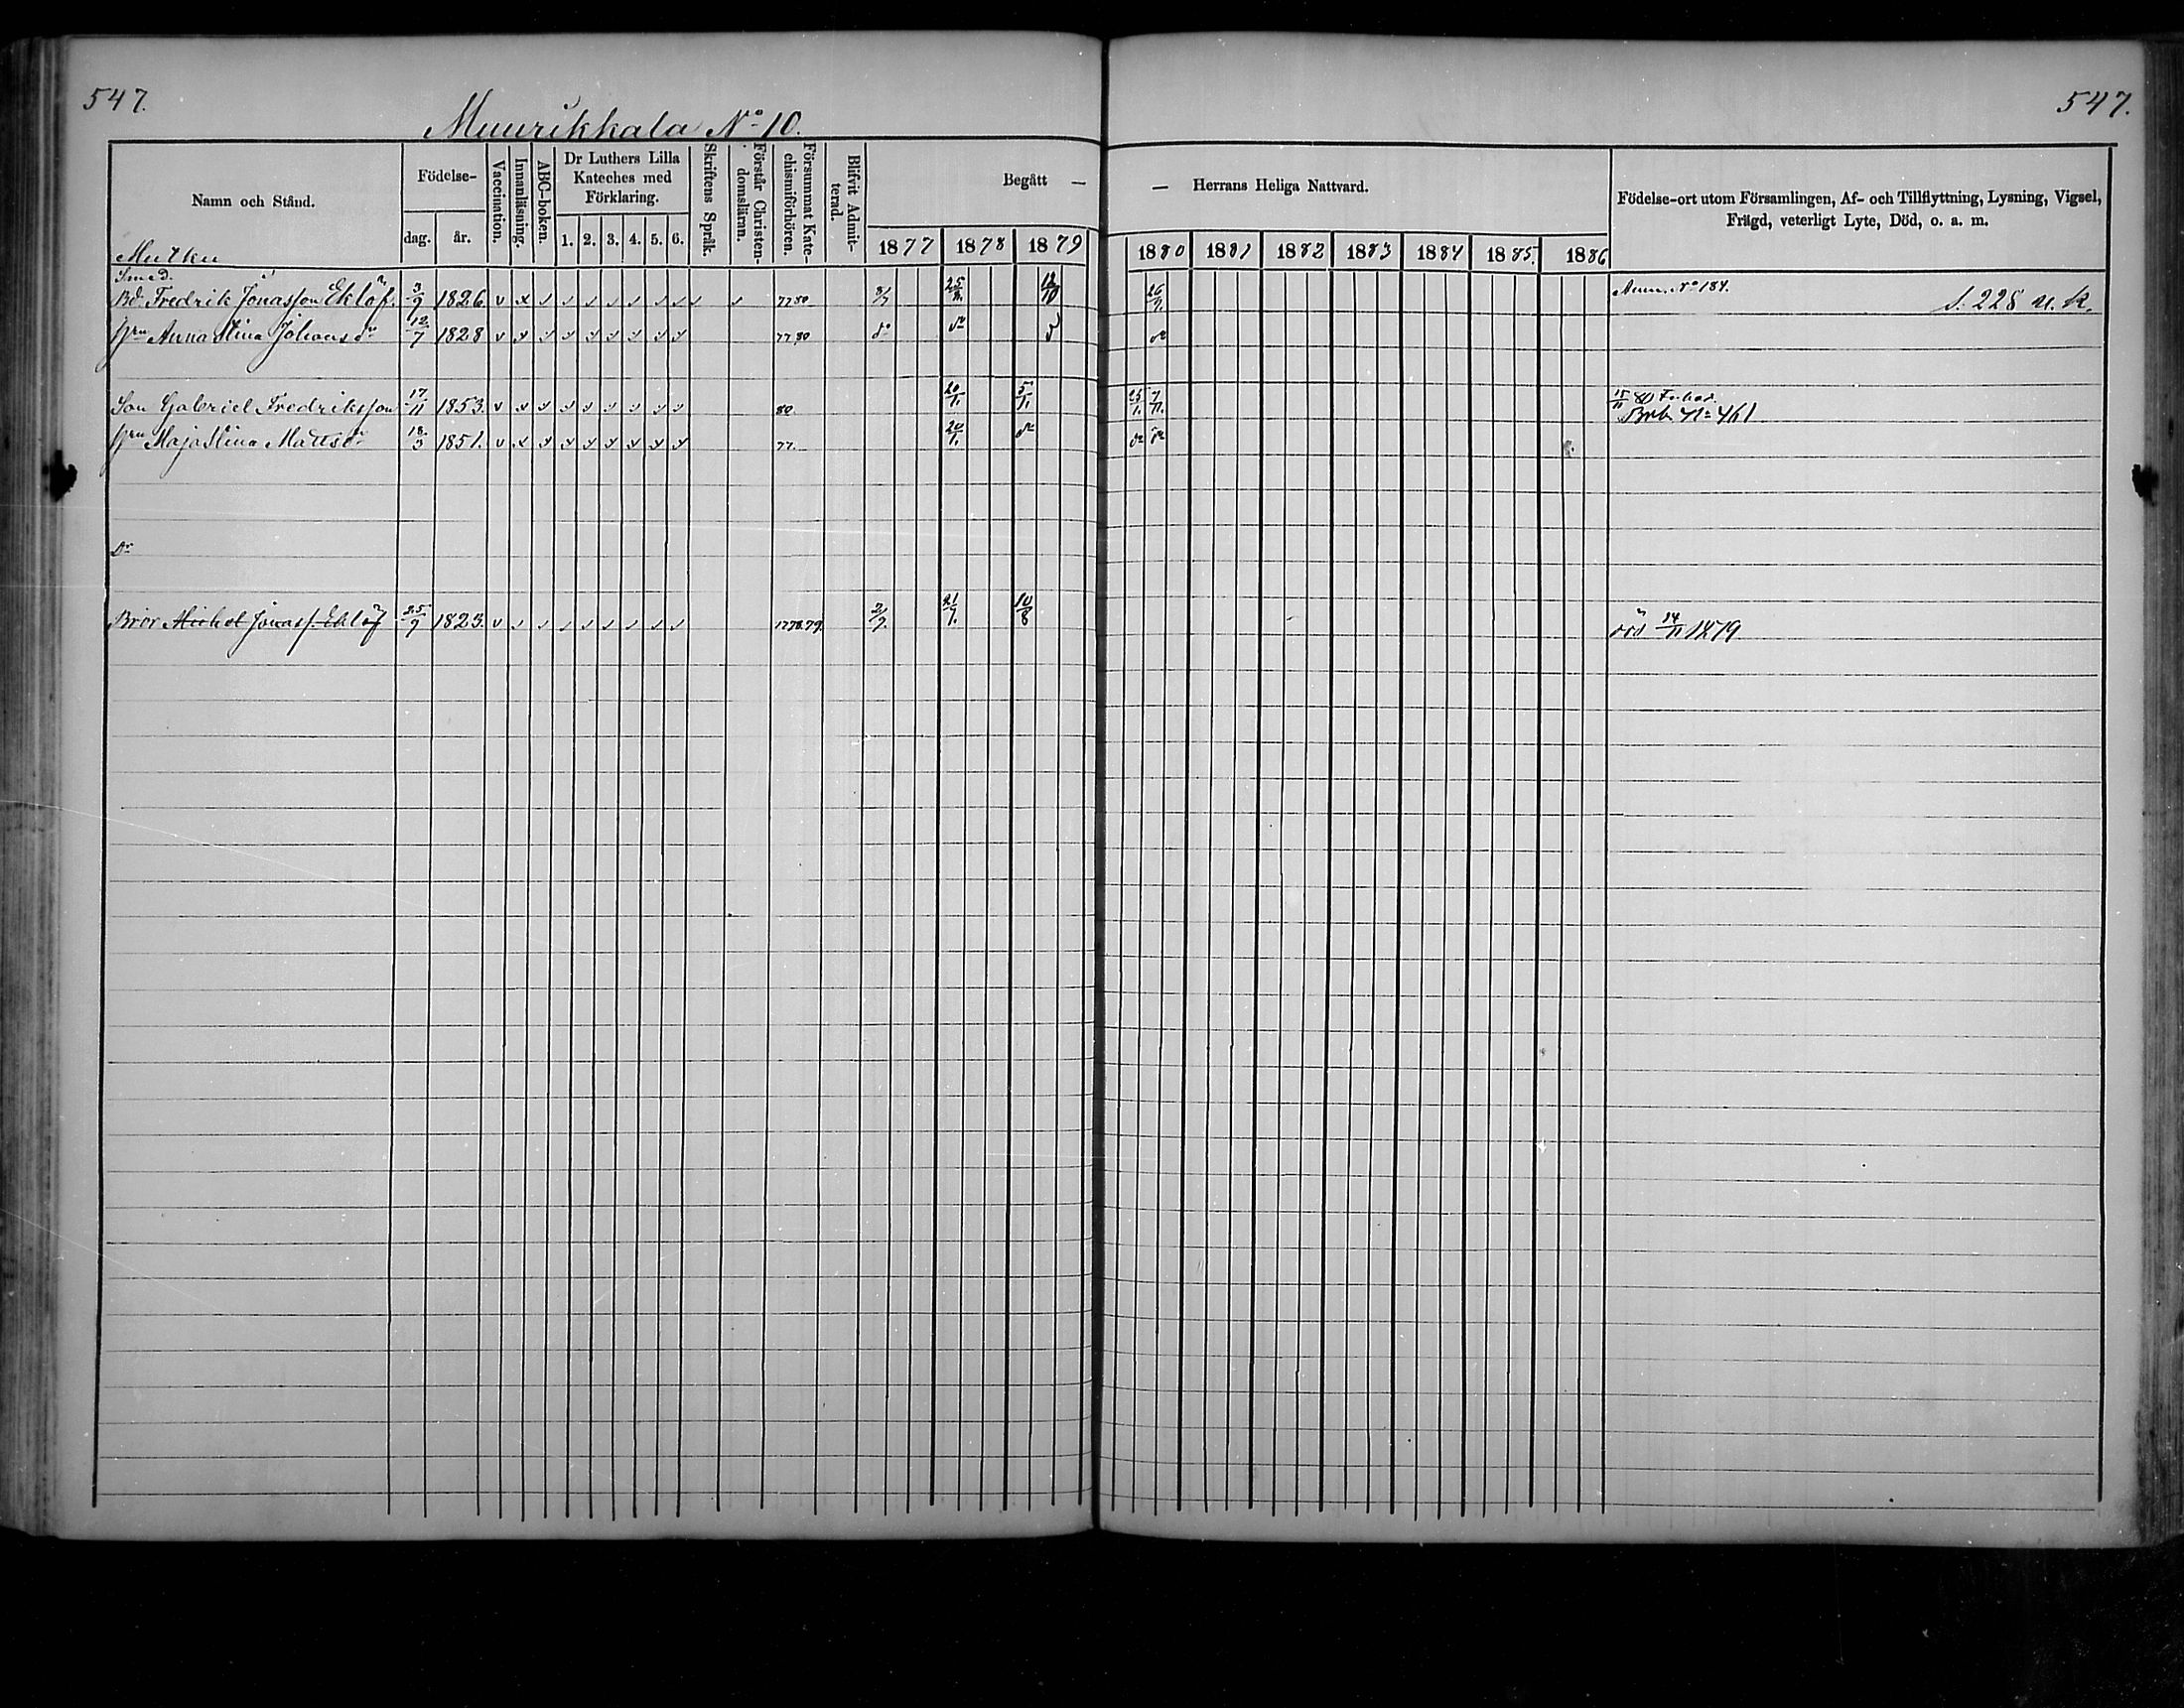 547.
547.
Muurikkala No 10.
Namn och Stånd.
Födelse-
dag.
år.
Vaccination.
Innanläsning.
ABC-boken.
Dr Luthers Lilla
Kateches med
Förklaring.
1. 2. 3. 4. 5. 6.
Skriftens Språk.
Förstår Christen-
domsläran.
Försummat Kate-
chismiförhören.
Blifvit Admit-
terad.
Begått —
— Herrans Heliga Nattvard.
1877 1878 1879
1880 1881 1882 1883 1884 1885. 1886
Födelse-ort utom Församlingen, Af- och Tillflyttning, Lysning, Vigsel,
Frägd, veterligt Lyte, Död, o. a. m.
Mutku
Smed.
Bd. Fredrik Jonasson Eklöf. 3/9 1826 77 80 8/7 25/8. 12/10 26/9. Ann. No 184. s. 228 u. k.
Hru Anna Stina Johansdr 12/7 1828 77 80 do do do
Son Gabriel Fredriksson 17/11 1853. 80 20/1. 5/1. 25/1. 7/11. 15/11 80
Hru Maja Stina Mattsdr 18/3 1851. 77. 20/1. do do do
Dr
Bror Michel Jonass. Eklöf 25/9 1823. 1778.79. 2/9. 21/7. 10/8 död 14/11 1879